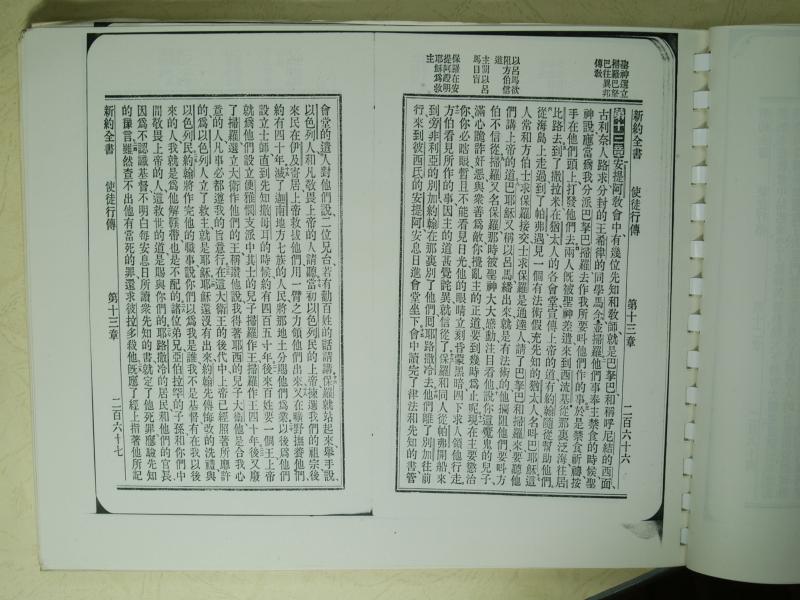 聖神選立
掃羅巴拏
巴往異邦
傳教
以呂馬欲
阻方伯信
道
主罰以呂
馬目盲
保羅在安
提阿證明
耶穌為救
主
新約全書 使徒行傳 第十三章 二百六十六
第十三章安提阿教會中有幾位先知和教師就是巴拏巴和稱呼尼結的西面
古利奈人路求分封的王希律的同學馬念並掃羅他們事奉主禁食的時候聖
神說應當為我分派巴拏巴掃羅去作我所要叫他們作的事於是禁食祈禱按
手在他們頭上打發他們去兩人既被聖神差遣來到西流基從那裏泛海往居
比路去到了撒拉米在猶太人的各會堂宣傳上帝的道有約翰隨從幫助他們
從海島上走過到了帕弗遇見一個有法術假充先知的猶太人名叫巴耶穌這
人常和方伯士求保羅接交士求保羅是通達人請了巴拏巴和掃羅來要聽他
們講上帝的道巴耶穌又稱以呂馬繙出來就是有法術的他攔阻他們要叫方
伯不信從掃羅又名保羅那時被聖神大大感動注目看他說你這魔鬼的兒子
滿心詭詐奸惡與衆善為敵你攪亂主的正道要到幾時為止呢現在主要懲治
你你必瞎眼暫且不能看見日光他的眼睛立刻昏蒙黑暗四下求人領他行走
方伯看見所作的事因主的道甚覺詫異就信從了保羅和同人從帕弗開船來
到旁非利亞的別加約翰在那裏別了他們回耶路撒冷去他們離了別加往前
行來到彼西氏的安提阿安息日進會堂坐下會中讀完了律法和先知的書管
會堂的遣人對他們說二位兄台若有勸百姓的話請講保羅就站起來舉手說
以色列人和凡敬畏上帝的人請聽當初以色列民的上帝揀選我們的祖宗後
來民在伊及寄居上帝救拔他們用一臂之力領他們出來又在曠野撫養他們
約有四十年滅了迦南地方七族的人民將那地土分賜他們為業以後為他們
設立士師直到先知撒母耳的時候約有四百五十年後來百姓要一個王上帝
就為他們設立便雅憫支派中其士的兒子掃羅作王掃羅作王四十年後又廢
了掃羅選立大衛作他們的王稱讚他說我得著耶西的兒子大衛他是合我心
意的人凡事必都遵我的旨意行在這大衛王的後代中上帝已經照著所應許
的為以色列人立了救主就是耶穌耶穌還沒有出來約翰先傳悔改的洗禮與
以色列民約翰將作完他的職事說你們以為我是誰我不是基督有在我以後
來的人我就是為他解鞋帶也是不配的諸位弟兄亞伯拉罕的子孫和你們中
間敬畏上帝的人這救世的道是賜與你們的耶路撒冷的居民和他們的官長
因為不認識基督不明白每安息日所讀衆先知的書就定了他死罪應驗先知
的豫言雖然查不出他有當死的罪還求彼拉多殺他既應了經上指著他所記
新約全書 使徒行傳 第十三章 二百六十七